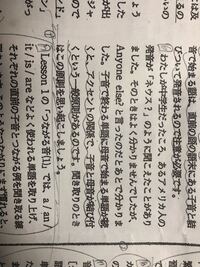 音で始まる語は，直前の語の語尾にある子音と結
びついて発音されるので注意が必要です。
わたしが中学生だったころ，あるアメリカ人の
発音が「ネウス!」のように聞こえたことがあり
ました。そのときはよく分かりませんでしたが，
Anyone else? と言ったのだとあとで分かりま
した。子音で終わる単語に母音で始まる単語が続
くと，アクセントの関係で，子音と母音が結び付
くという一般原則があるのです。聞き取りのとき
はこの原則を思い起こしましょう。
Lesson 1 の「つながる音(1)」では，a / an /
it / is / are などよく使われる単語を取り上げ，
れぞれの直前の子音でつながる例を聞き取る練